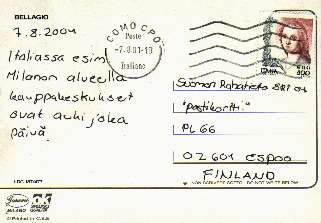 BELLAGIO
7.8.2001
Italiassa esim.
Milanon alueella
kauppakeskukset
ovat auki joka
päivä.
COMO CPO
Poste
-7.8.01-19
Italiane
ITALIA
800
Suomen Rahatieto
"postikortti"
PL 66
02601 ESPOO
FINLAND
MILANO